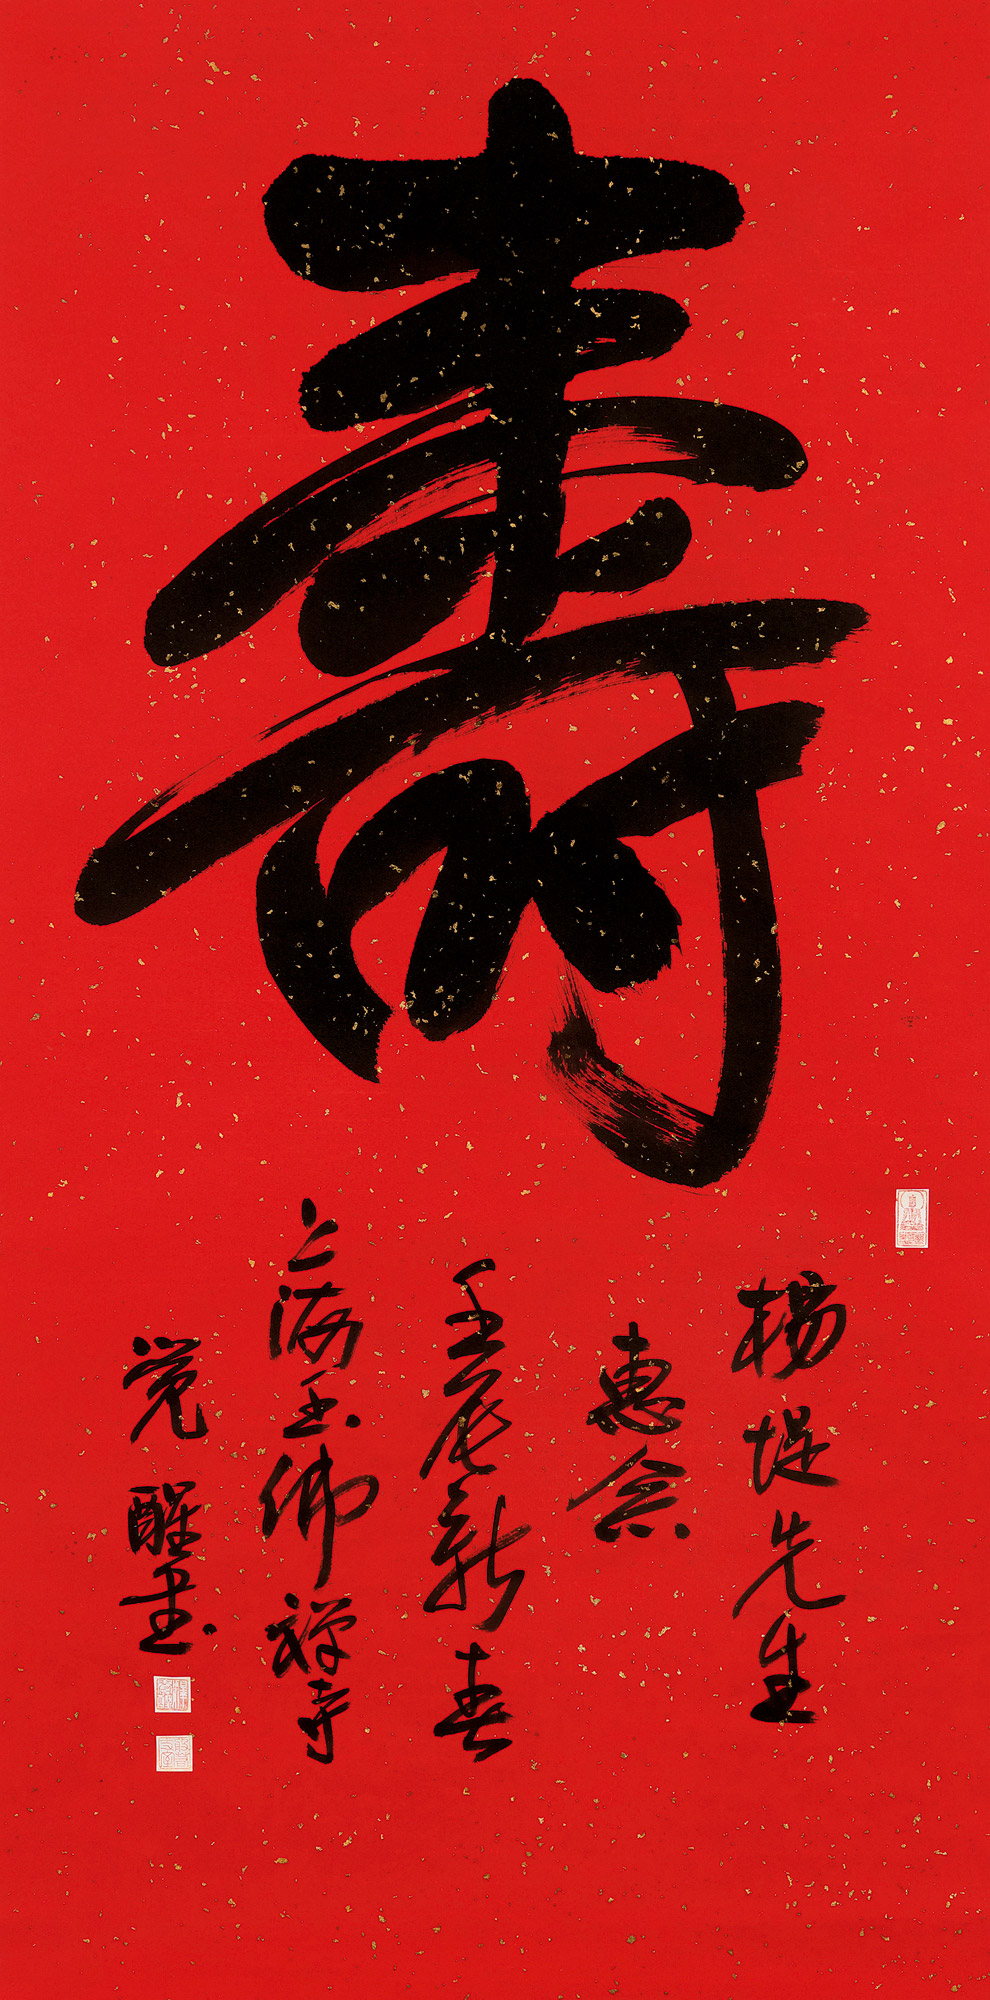 壽
楊堤先生
惠念
壬辰新春
上海玉佛禅寺
觉醒书